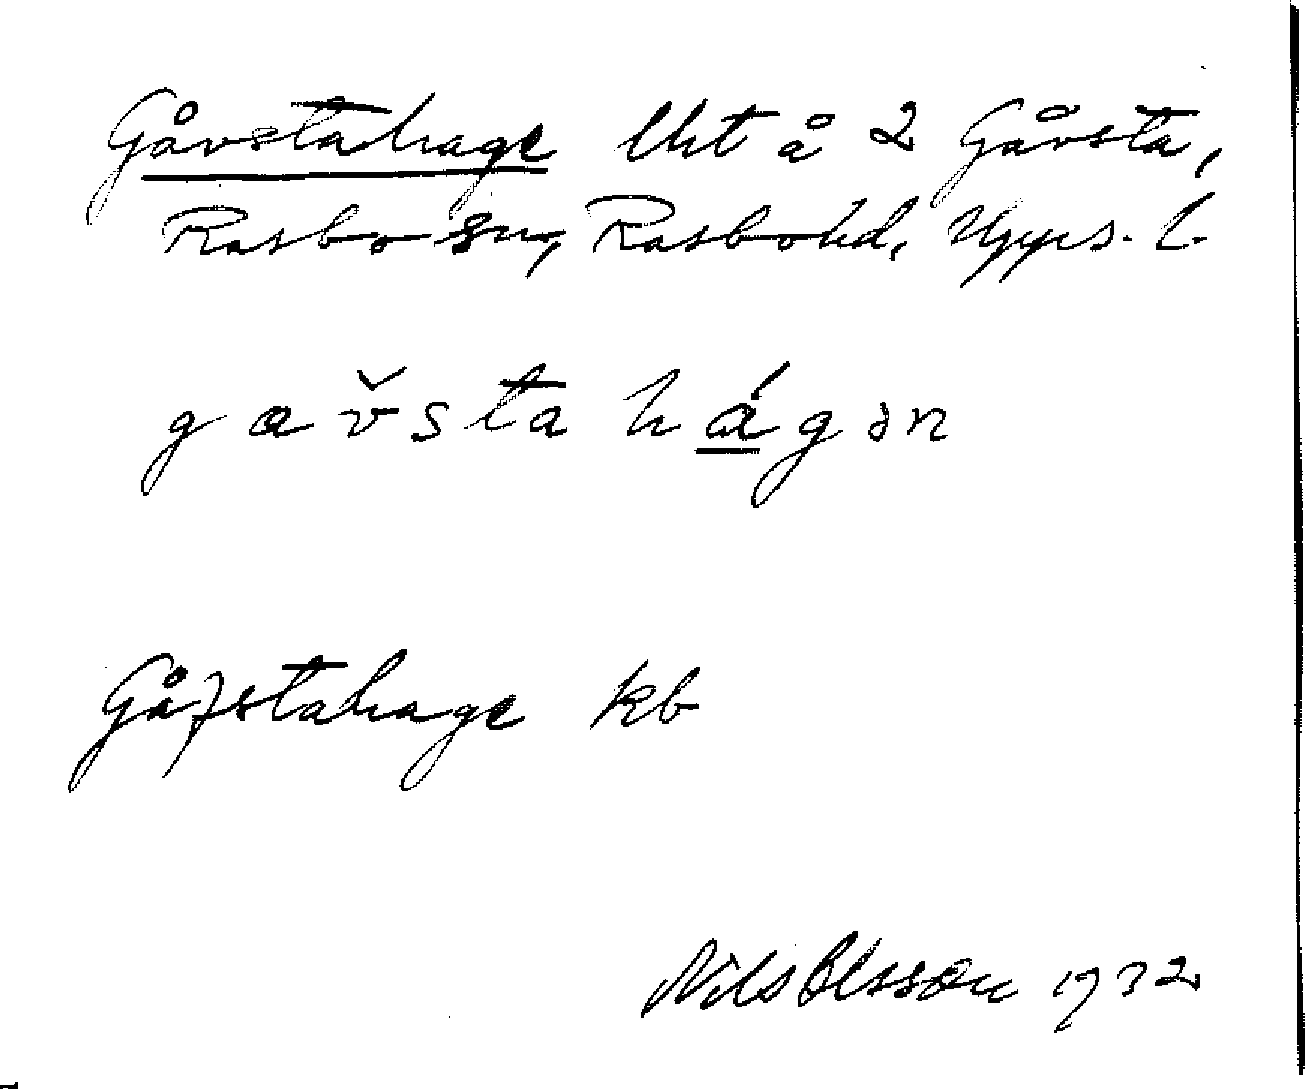 Gåvstahage lht å 2 Gåvsta,
Rasbo sn, Rasbo hd, Upps. l.
gav̌sta hágən
Gåfstahage kb
Nils Olsson 1932